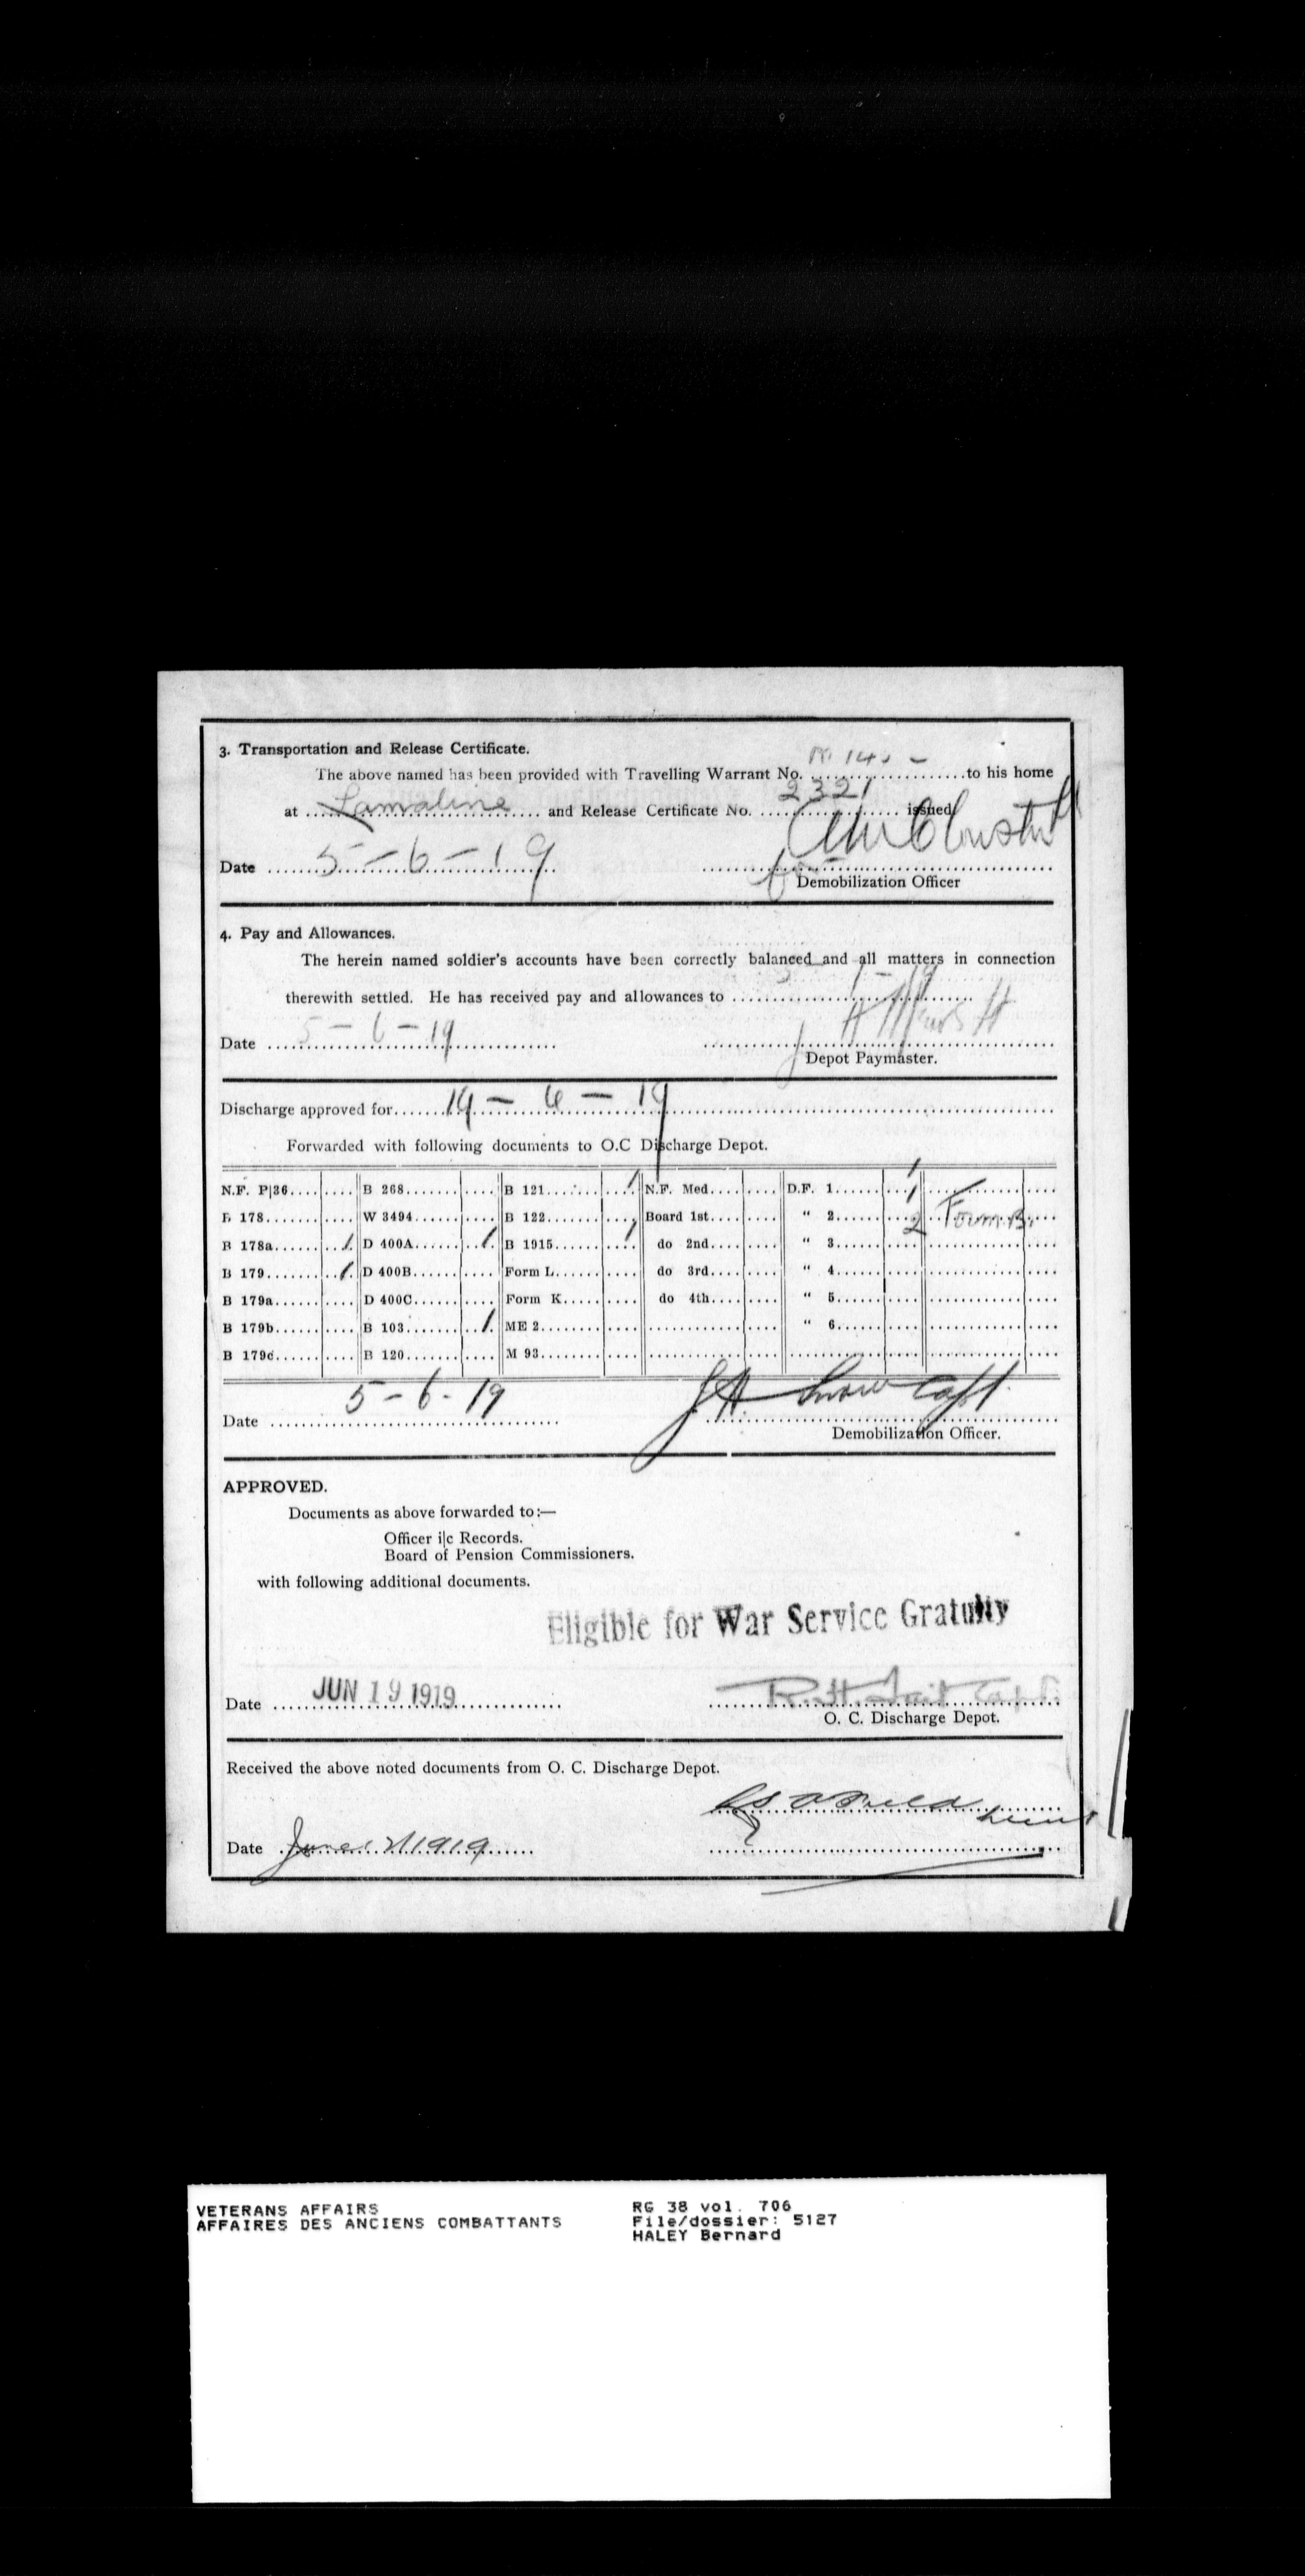 3. Transportation and Release Certificate.
The above named has been provided with Travelling Warrant No. .................... to his home
at Lamaline and Release Certificate No. 2321 issued
Date 5-6-19
Demobilization Officer
4. Pay and Allowances.
The herein named soldier's accounts have been correctly balanced and all matters in connection
therewith settled. He has received pay and allowances to ....................
Date 5-6-19
Depot Paymaster.
Discharge approved for 19-6-19
Forwarded with following documents to O.C Discharge Depot.
N.F. P|36 B 268 B 121 1 N.F. Med. D.F. 1 1
B 178 W 3494 B 122 Board 1st " 2 2 Form B.
B 178a 1 D 400A 1 B 1915 1 do 2nd " 3
B 179 1 D 400B Form L do 3rd " 4
B 179a D 400C Form K do 4th " 5
B 179b B 103 1 ME 2 " 6
B 179c B 120 M 93
Date 5-6-19 Capt.
Demobilization Officer.
APPROVED.
Documents as above forwarded to:—
Officer i|c Records.
Board of Pension Commissioners.
with following additional documents.
Eligible for War Service Gratuity
Date JUN 19 1919 R.H. Tait Capt.
O. C. Discharge Depot.
Received the above noted documents from O. C. Discharge Depot.
Date June 21 1919
VETERANS AFFAIRS
AFFAIRES DES ANCIENS COMBATTANTS
RG 38 vol. 706
File/dossier: 5127
HALEY Bernard